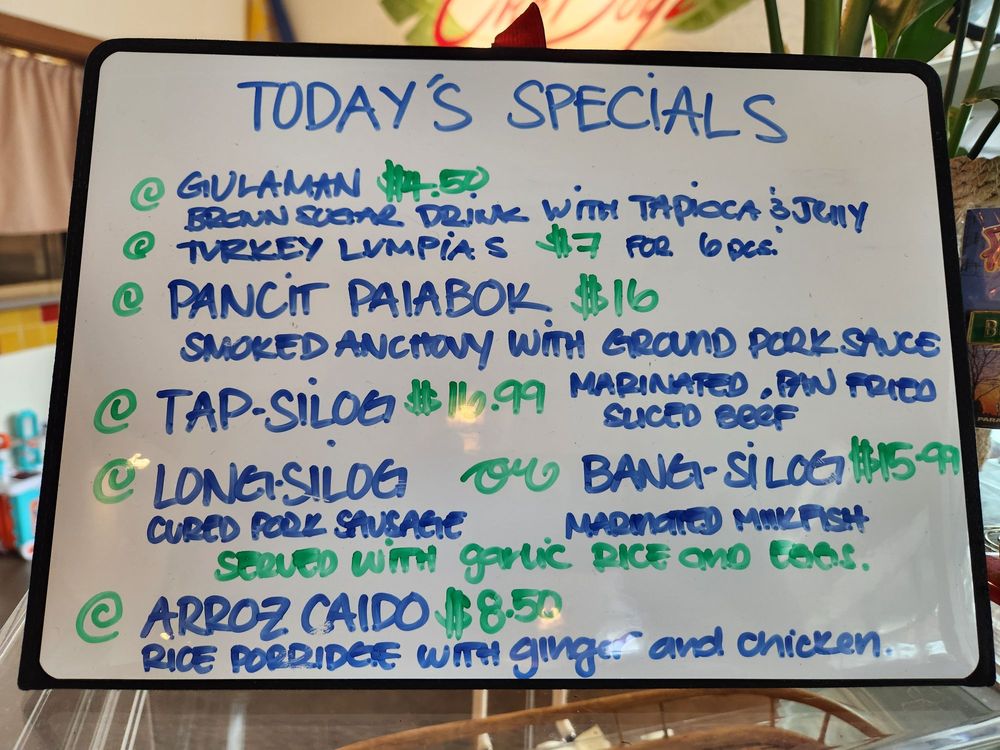 TODAY'S SPECIALS
GULAMAN $4.50
BROWN SUGAR DRINK WITH TAPIOCA & JELLY
TURKEY LUMPIAS $7 FOR 6 pcs.
PANCIT PALABOK $16
SMOKED ANCHOVY WITH GROUND PORK SAUCE
TAP-SILOG $16.99 MARINATED, PAN FRIED
SLICED BEEF
LONG-SILOG or BANG-SILOG $15.99
CURED PORK SAUSAGE MARINATED MILKFISH
SERVED WITH garlic RICE and EGGS.
ARROZ CAIDO $8.50
RICE PORRIDGE WITH ginger and chicken.